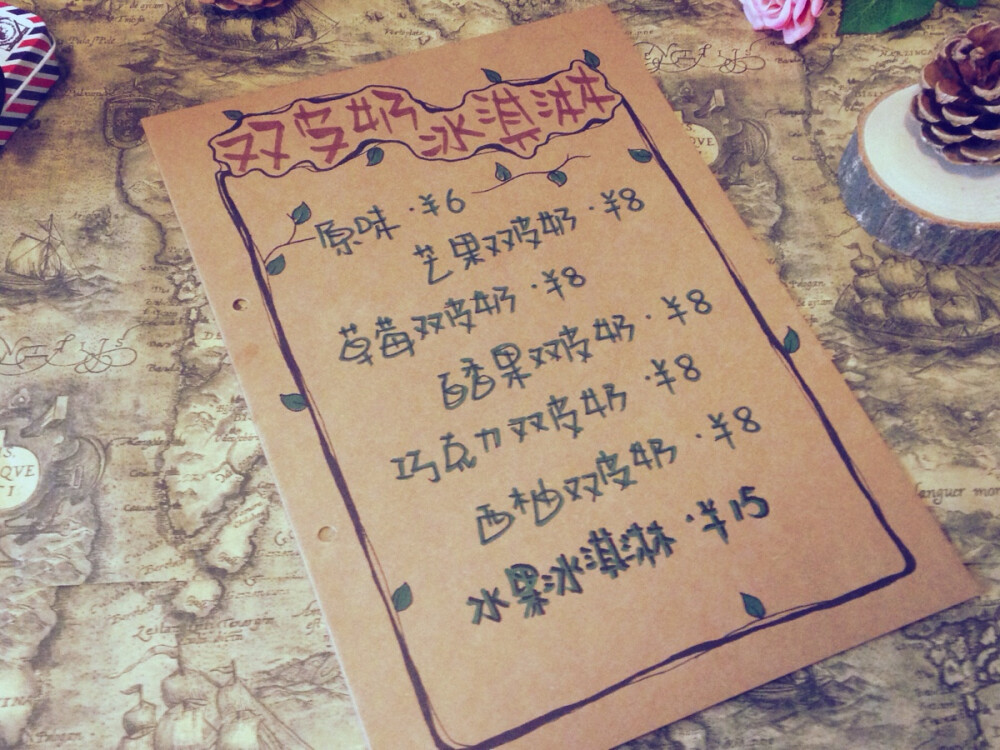 双皮奶冰淇淋
原味·¥6
芒果双皮奶·¥8
草莓双皮奶·¥8
百香果双皮奶·¥8
巧克力双皮奶·¥8
西柚双皮奶·¥8
水果冰淇淋·¥15